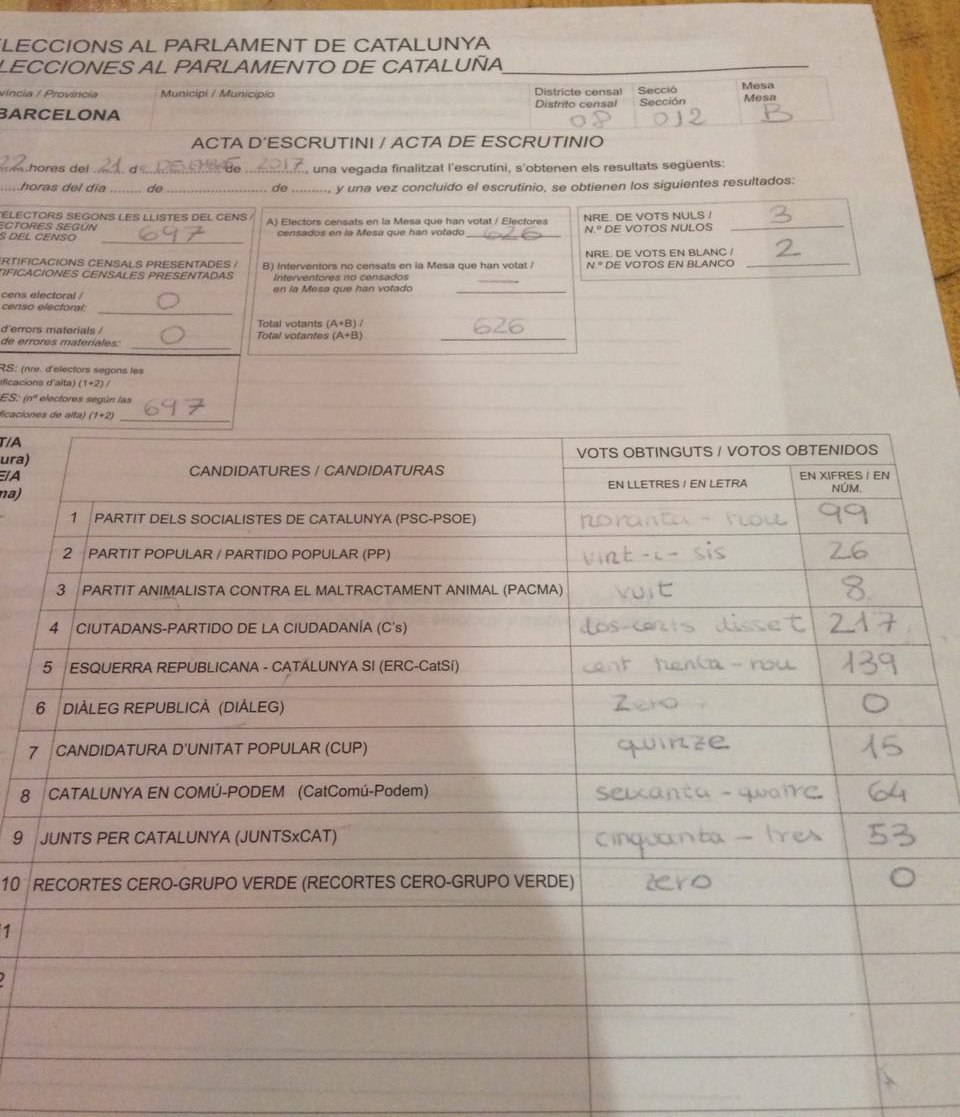 LECCIONS AL PARLAMENT DE CATALUNYA
LECCIONES AL PARLAMENTO DE CATALUÑA
víncia / Provincia
BARCELONA
Municipi / Municipio
Districte censal
Distrito censal
08
Secció
Sección
012
Mesa
Mesa
B
ACTA D'ESCRUTINI / ACTA DE ESCRUTINIO
22 hores del 21 d DESEMBRE de 2017, una vegada finalitzat l'escrutini, s'obtenen els resultats següents:
horas del día ........ de ........ de ........, y una vez concluido el escrutinio, se obtienen los siguientes resultados:
ELECTORS SEGONS LES LLISTES DEL CENS /
ECTORES SEGÚN
S DEL CENSO 697
RTIFICACIONS CENSALS PRESENTADES /
TIFICACIONES CENSALES PRESENTADAS
cens electoral /
censo electoral: 0
d'errors materials /
de errores materiales: 0
RS: (nre. d'electors segons les
ificacions d'alta) (1+2) /
ES: (nº electores según las
ficaciones de alta) (1+2) 697
A) Electors censats en la Mesa que han votat / Electores
censados en la Mesa que han votado 626
B) Interventors no censats en la Mesa que han votat /
Interventores no censados
en la Mesa que han votado —
Total votants (A+B) /
Total votantes (A+B) 626
NRE. DE VOTS NULS /
N.º DE VOTOS NULOS 3
NRE. DE VOTS EN BLANC /
N.º DE VOTOS EN BLANCO 2
T/A
ura)
E/A
ma)
CANDIDATURES / CANDIDATURAS
VOTS OBTINGUTS / VOTOS OBTENIDOS
EN LLETRES / EN LETRA
EN XIFRES / EN
NÚM.
1 PARTIT DELS SOCIALISTES DE CATALUNYA (PSC-PSOE) noranta-nou 99
2 PARTIT POPULAR / PARTIDO POPULAR (PP) vint-i-sis 26
3 PARTIT ANIMALISTA CONTRA EL MALTRACTAMENT ANIMAL (PACMA) vuit 8
4 CIUTADANS-PARTIDO DE LA CIUDADANÍA (C's) dos-cents disset 217
5 ESQUERRA REPUBLICANA - CATALUNYA SI (ERC-CatSí) cent trenta-nou 139
6 DIÀLEG REPUBLICÀ (DIÀLEG) Zero 0
7 CANDIDATURA D'UNITAT POPULAR (CUP) quinze 15
8 CATALUNYA EN COMÚ-PODEM (CatComú-Podem) seixanta-quatre 64
9 JUNTS PER CATALUNYA (JUNTSxCAT) cinquanta-tres 53
10 RECORTES CERO-GRUPO VERDE (RECORTES CERO-GRUPO VERDE) zero 0
1
2